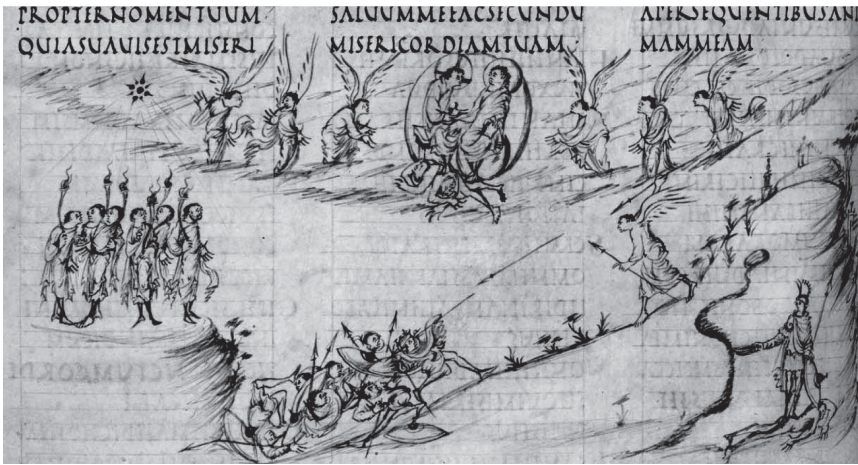 PROPTERNOMENTUUM
QUIASUAUISESTMISERI
SALUUMMEFACSECUNDU
MISERICORDIAMTUAM.
APERSEQUENTIBUSANI
MAMMEAM